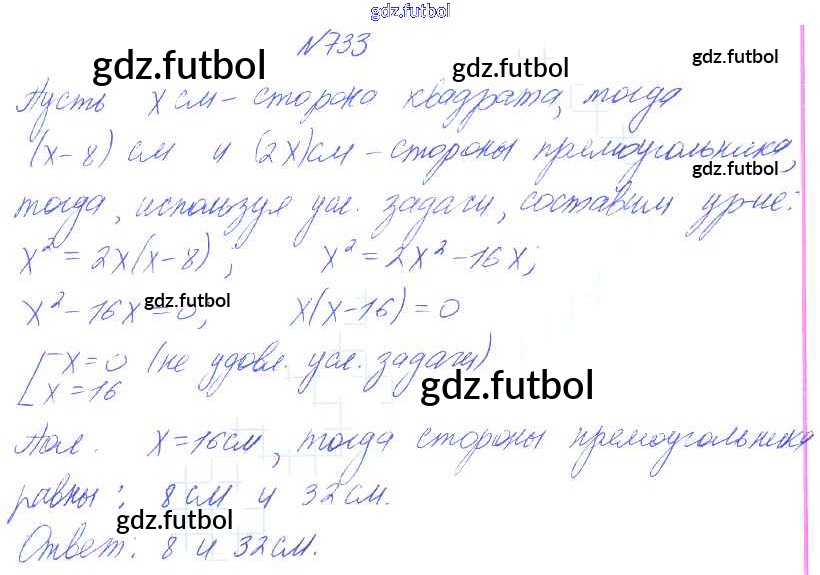 gdz.futbol
N733
gdz.futbol gdz.futbol gdz.futbol
Пусть x см – сторона квадрата, тогда
(x-8) см и (2x)см – стороны прямоугольника,
gdz.futbol
тогда, используя усл. задачи, составим ур-ие:
x² = 2x(x-8); x² = 2x² - 16x;
x² - 16x = 0, x(x-16) = 0
gdz.futbol
[x = 0 (не удовл. усл. задачи)
x = 16
gdz.futbol
Пол. x = 16см, тогда стороны прямоугольника
равны: 8 см и 32 см.
gdz.futbol
Ответ: 8 и 32 см.